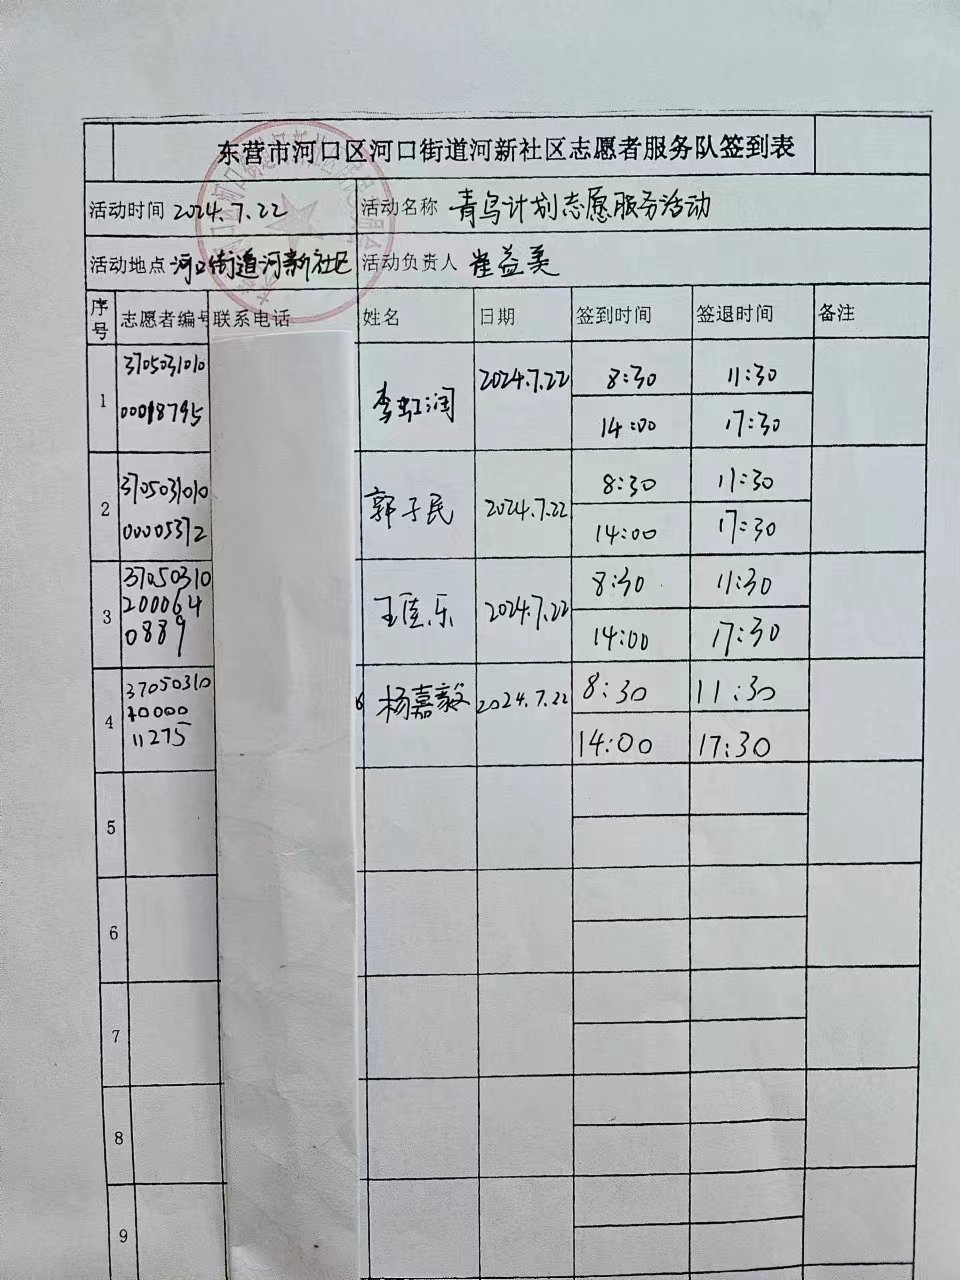 东营市河口区河口街道河新社区志愿者服务队签到表
活动时间 2024.7.22 活动名称 青鸟计划志愿服务活动
活动地点 河口街道河新社区 活动负责人 崔益美
序号 志愿者编号 联系电话 姓名 日期 签到时间 签退时间 备注
1 3705031010 00018795 李虹润 2024.7.22 8:30 11:30
14:00 17:30
2 3705031010 00005372 郭子民 2024.7.22 8:30 11:30
14:00 17:30
3 37050310 200064 0889 王佳乐 2024.7.22 8:30 11:30
14:00 17:30
4 37050310 10000 11275 杨嘉毅 2024.7.22 8:30 11:30
14:00 17:30
5
6
7
8
9